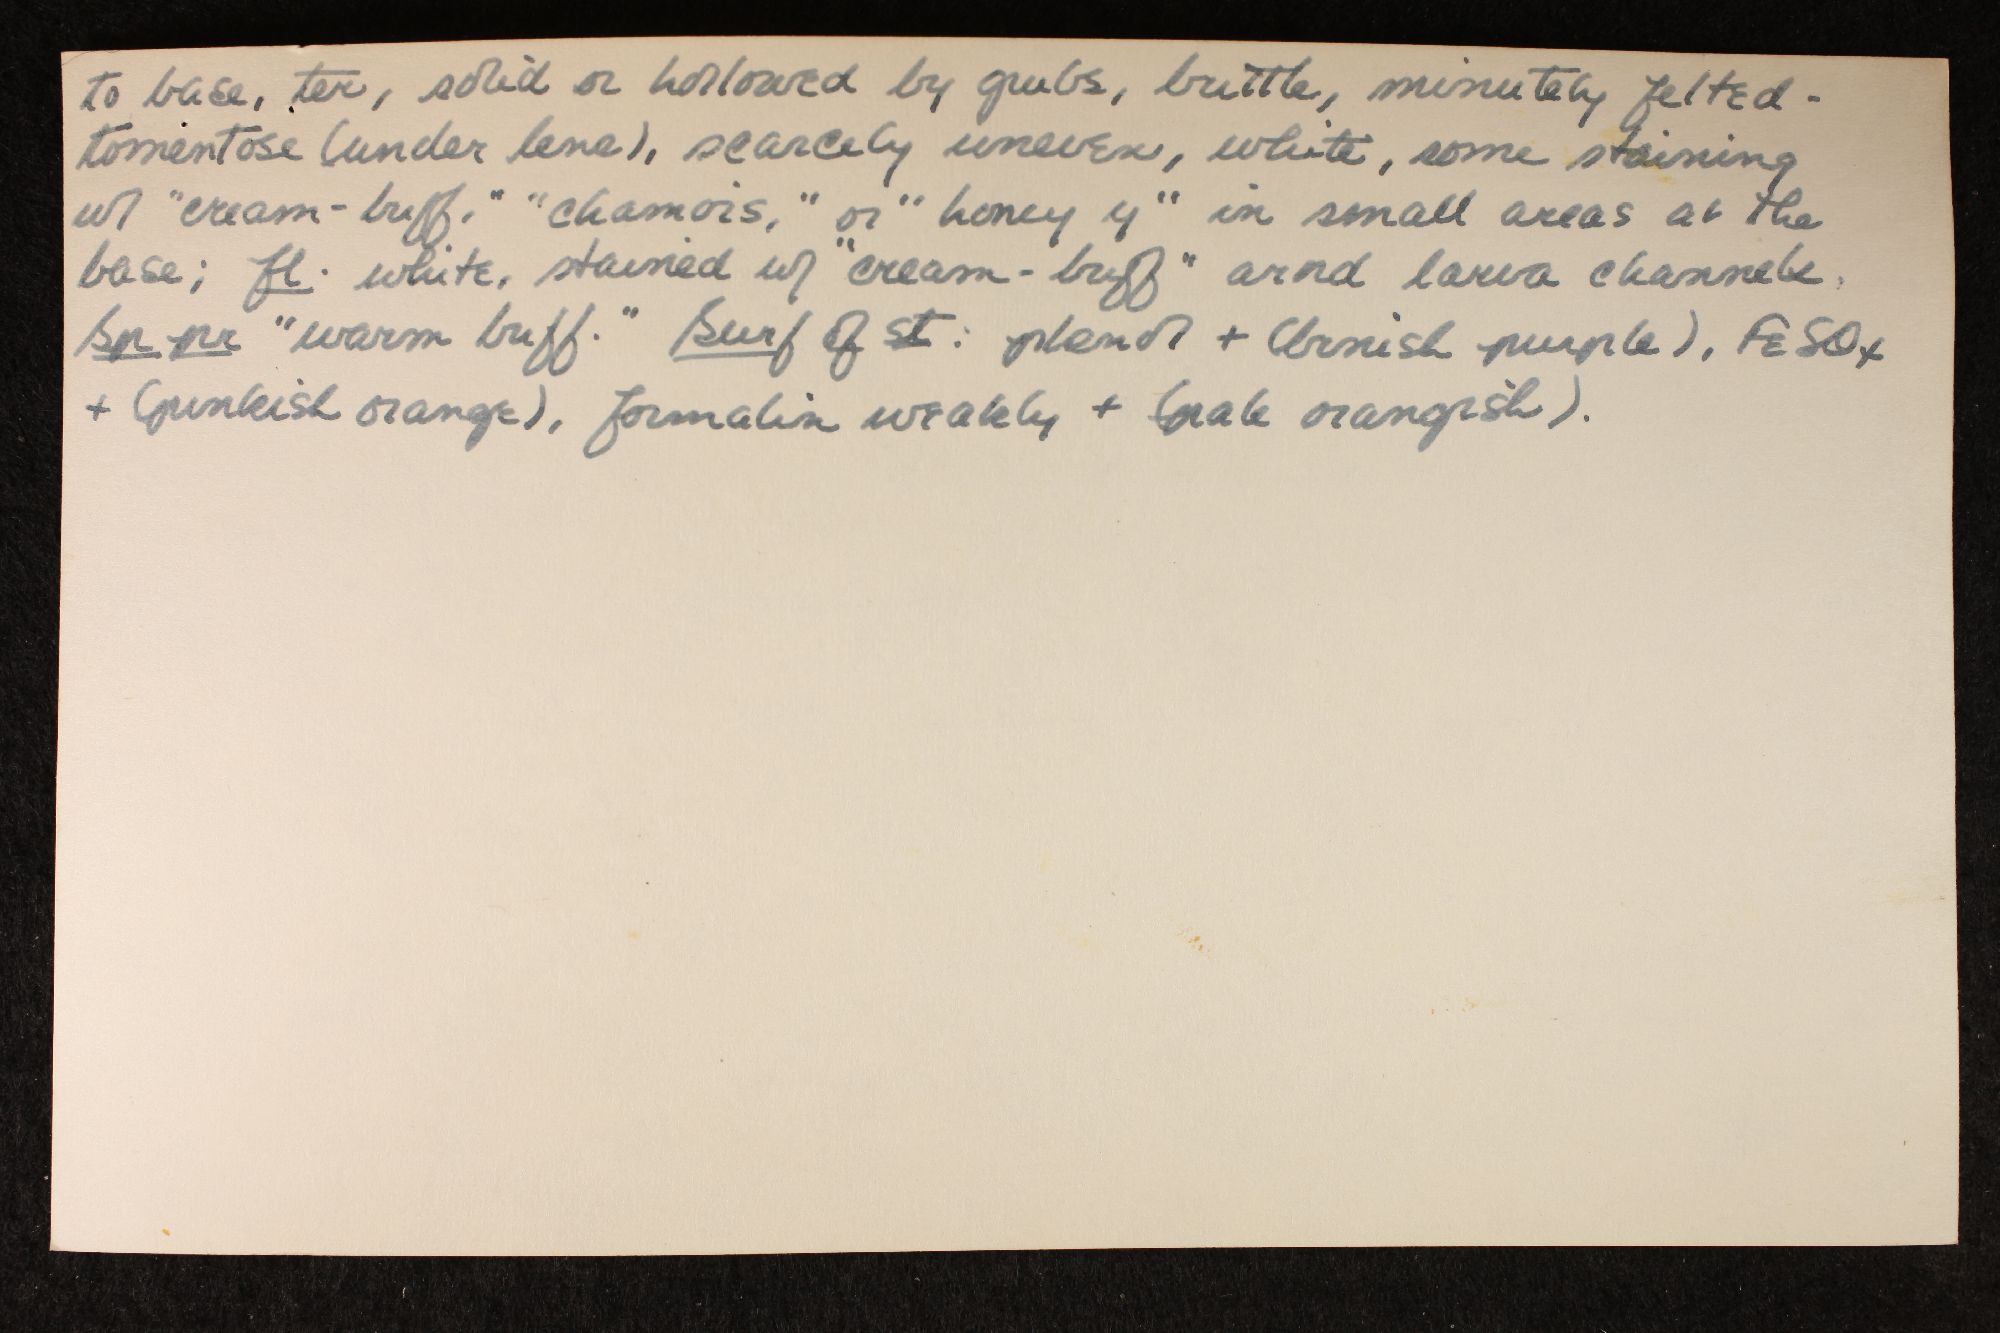 to base, ter, solid or hollowed by grubs, brittle, minutely felted-
tomentose (under lens), scarcely uneven, white, some staining
w/ "cream-buff," "chamois," or "honey y" in small areas at the
base; fl. white, stained w/ "cream-buff" arnd larva channels.
Sp pr "warm buff." Surf of st: phenol + (brnish purple), FeSO4
+ (pinkish orange), formalin weakly + (pale orangish).